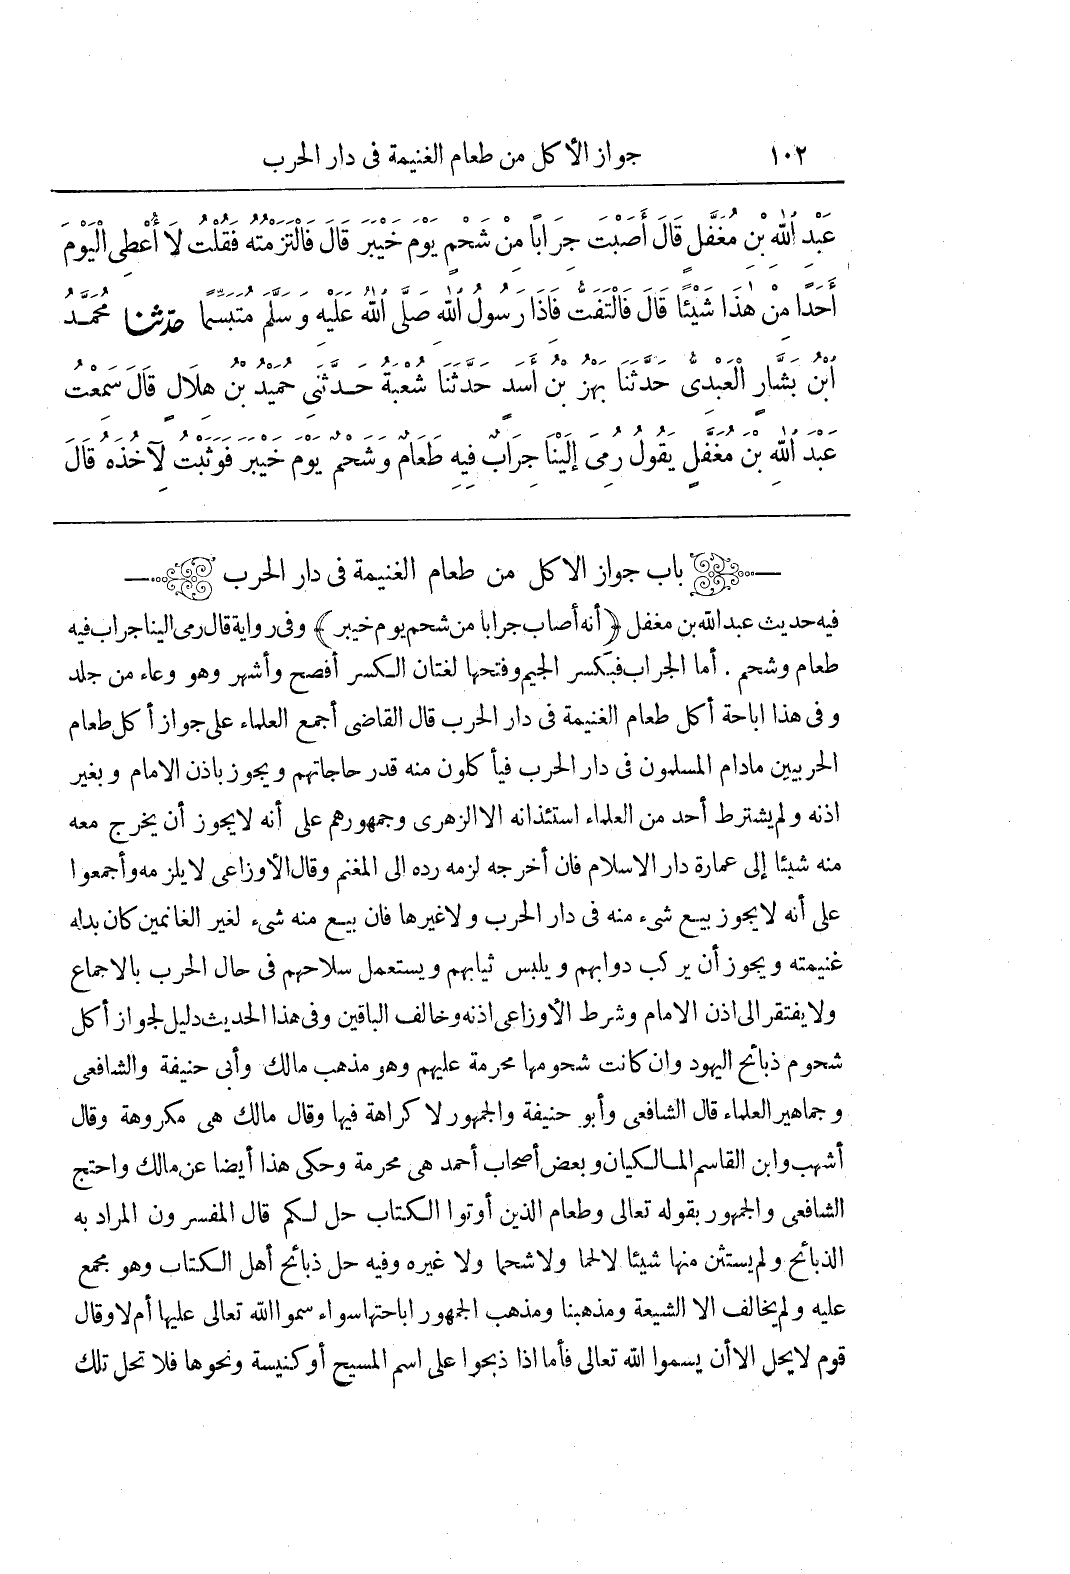 ١٠٢ جواز الأكل من طعام الغنيمة فى دار الحرب
عَبْدِ اللهِ بْنِ مُغَفَّلٍ قَالَ أَصَبْتُ جِرَابًا مِنْ شَحْمٍ يَوْمَ خَيْبَرَ قَالَ فَالْتَزَمْتُهُ فَقُلْتُ لَا أُعْطِى الْيَوْمَ
أَحَدًا مِنْ هٰذَا شَيْئًا قَالَ فَالْتَفَتُّ فَاذَا رَسُولُ اللهِ صَلَّى اللهُ عَلَيْهِ وَسَلَّمَ مُتَبَسِّمًا حَدَّثَنَا مُحَمَّدُ
ابْنُ بَشَّارٍ الْعَبْدِىُّ حَدَّثَنَا بَهْزُ بْنُ أَسَدٍ حَدَّثَنَا شُعْبَةُ حَدَّثَنِى حُمَيْدُ بْنُ هِلَالٍ قَالَ سَمِعْتُ
عَبْدَ اللهِ بْنَ مُغَفَّلٍ يَقُولُ رُمِىَ إِلَيْنَا جِرَابٌ فِيهِ طَعَامٌ وَشَحْمٌ يَوْمَ خَيْبَرَ فَوَثَبْتُ لِآخُذَهُ قَالَ
باب جواز الاكل من طعام الغنيمة فى دار الحرب
فيه حديث عبد الله بن مغفل ﴿أنه أصاب جرابا من شحم يوم خيبر﴾ وفى رواية قال رمى الينا جراب فيه
طعام وشحم . أما الجراب فبكسر الجيم وفتحها لغتان الكسر أفصح وأشهر وهو وعاء من جلد
وفى هذا اباحة أكل طعام الغنيمة فى دار الحرب قال القاضى أجمع العلماء على جواز أكل طعام
الحربيين مادام المسلمون فى دار الحرب فيأكلون منه قدر حاجاتهم ويجوز باذن الامام وبغير
اذنه ولم يشترط أحد من العلماء استئذانه الا الزهرى وجمهورهم على أنه لايجوز أن يخرج معه
منه شيئا إلى عمارة دار الاسلام فان أخرجه لزمه رده الى المغنم وقال الأوزاعى لا يلزمه وأجمعوا
على أنه لايجوز بيع شىء منه فى دار الحرب ولا غيرها فان بيع منه شىء لغير الغانمين كان بدله
غنيمته ويجوز أن يركب دوابهم ويلبس ثيابهم ويستعمل سلاحهم فى حال الحرب بالاجماع
ولا يفتقر الى اذن الامام وشرط الأوزاعى اذنه وخالف الباقين وفى هذا الحديث دليل لجواز أكل
شحوم ذبائح اليهود وان كانت شحومها محرمة عليهم وهو مذهب مالك وأبى حنيفة والشافعى
وجماهير العلماء قال الشافعى وأبو حنيفة والجمهور لا كراهة فيها وقال مالك هى مكروهة وقال
أشهب وابن القاسم المالكيان وبعض أصحاب أحمد هى محرمة وحكى هذا أيضا عن مالك واحتج
الشافعى والجمهور بقوله تعالى وطعام الذين أوتوا الكتاب حل لكم قال المفسرون المراد به
الذبائح ولم يستثن منها شيئا لالحما ولا شحما ولا غيره وفيه حل ذبائح أهل الكتاب وهو مجمع
عليه ولم يخالف الا الشيعة ومذهبنا ومذهب الجمهور اباحتها سواء سموا الله تعالى عليها أم لا وقال
قوم لايحل الا أن يسموا الله تعالى فأما اذا ذبحوا على اسم المسيح أو كنيسة ونحوها فلا تحل تلك